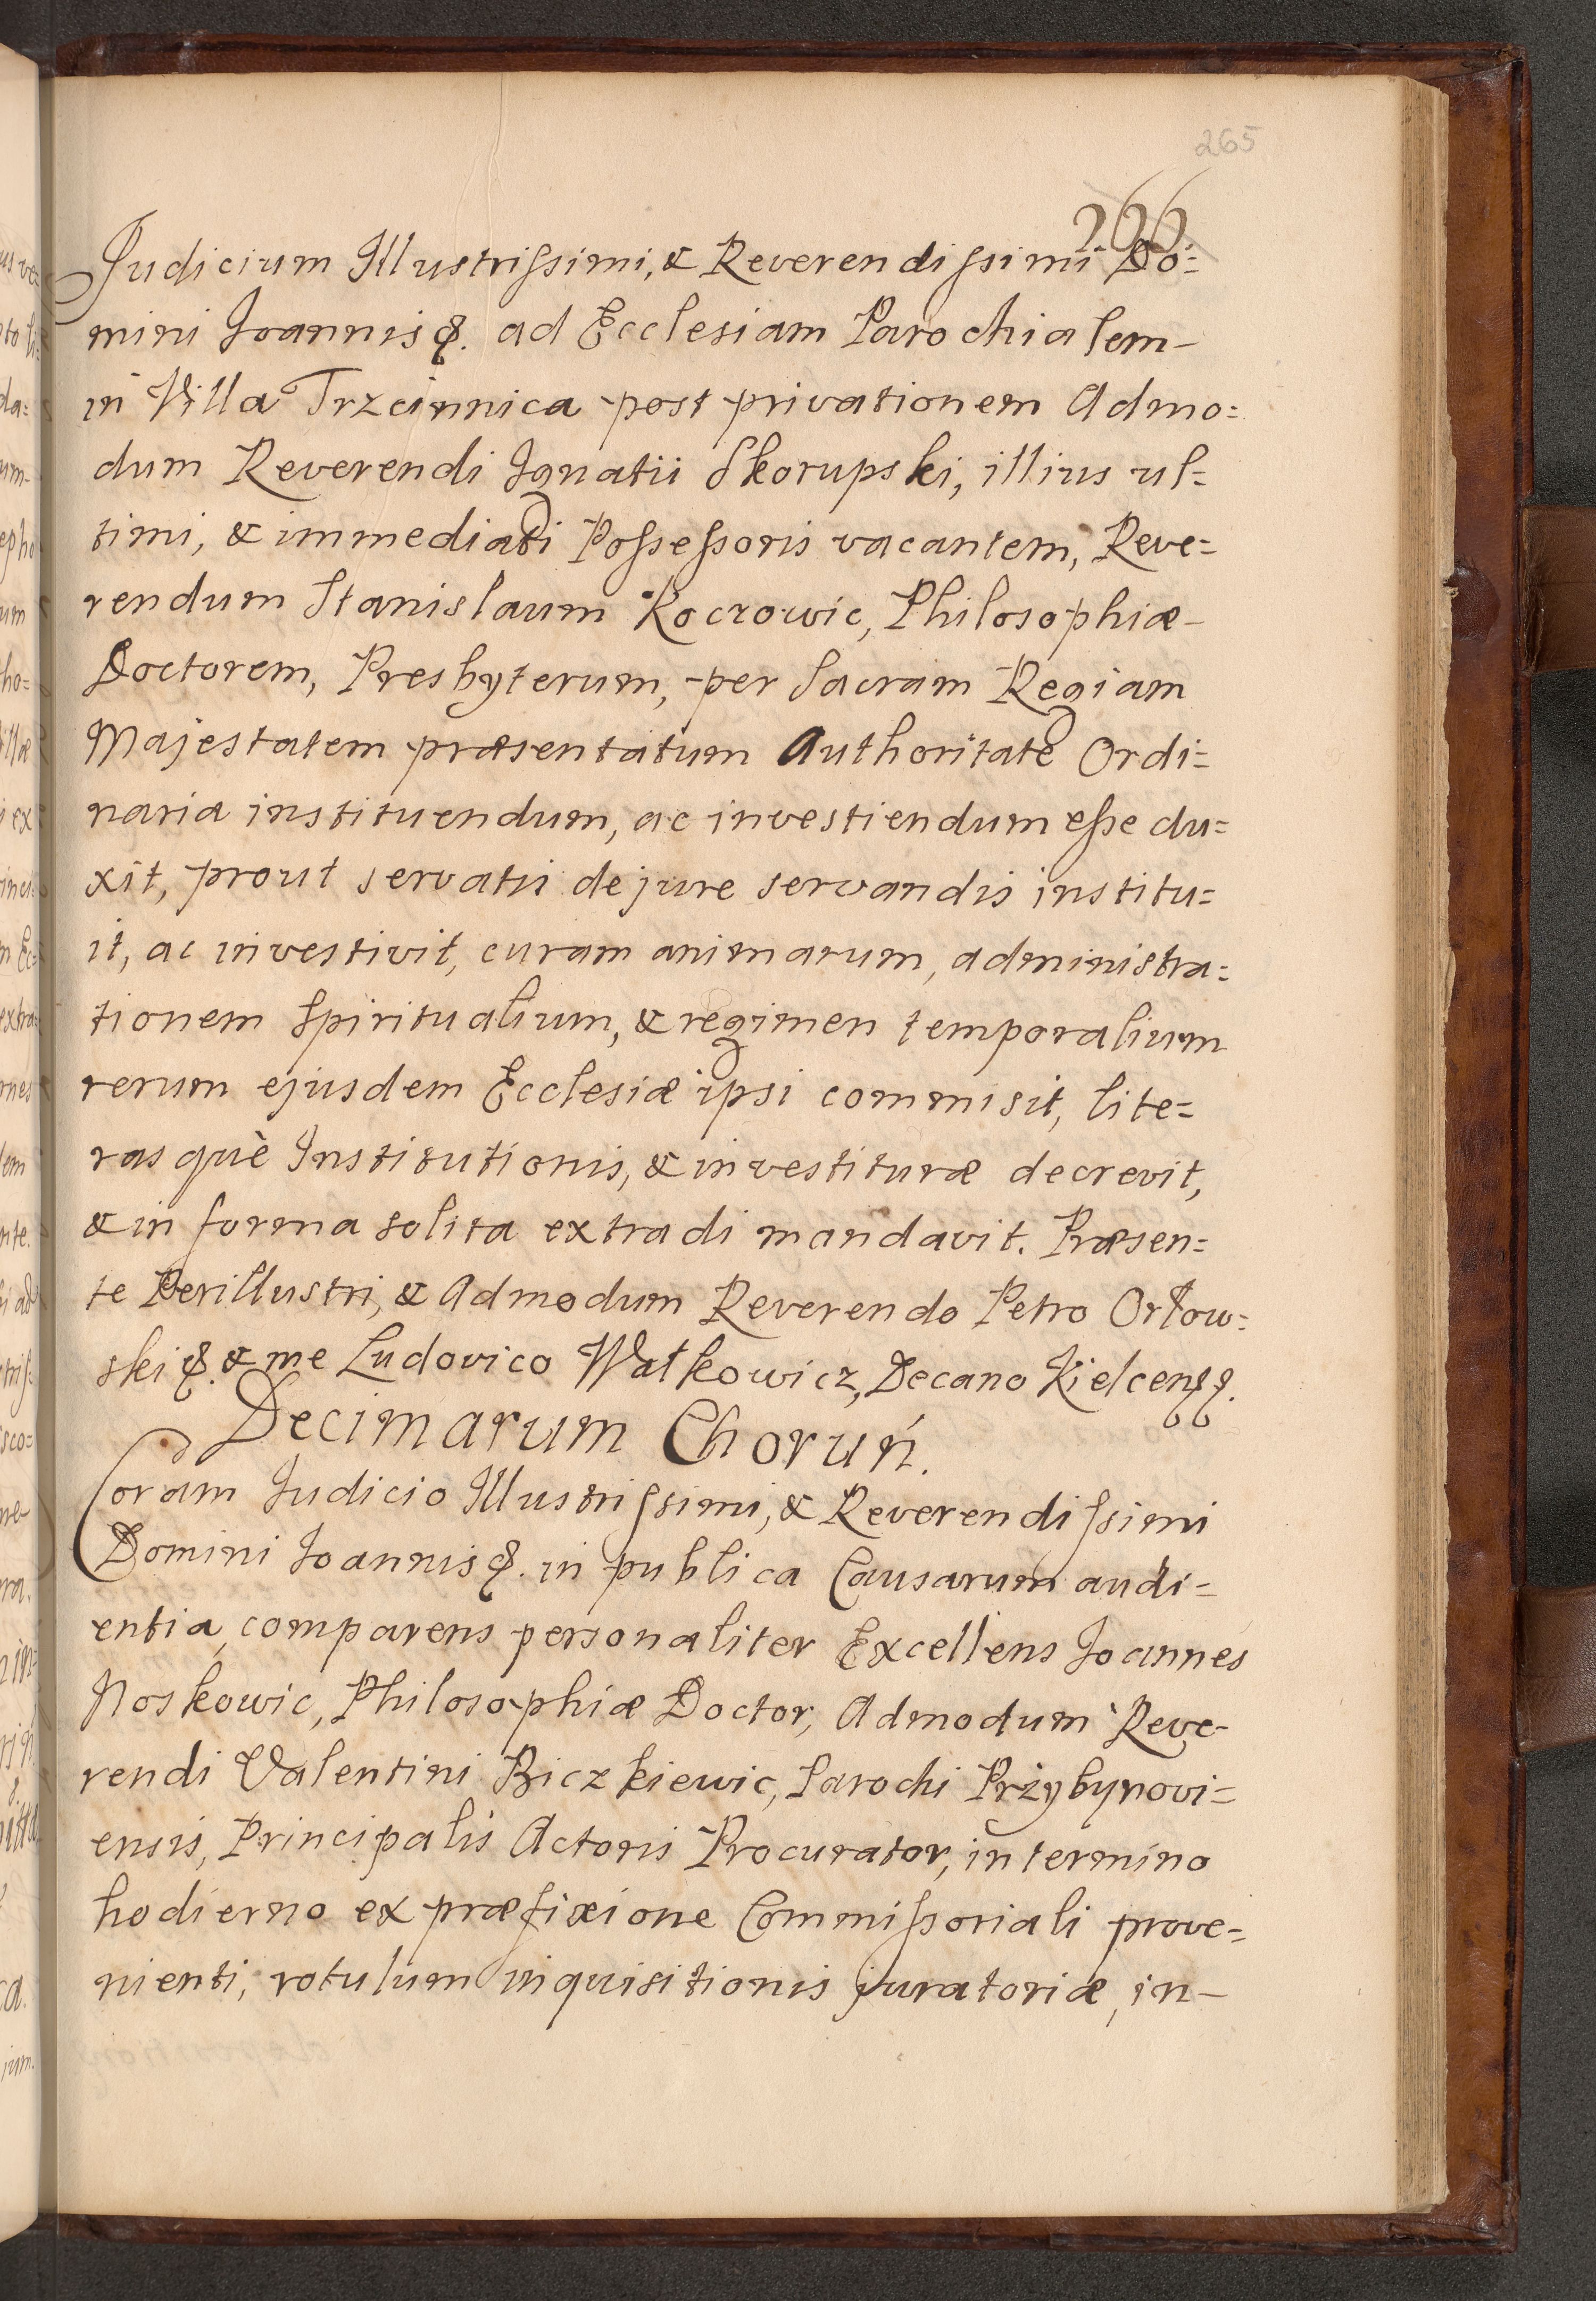 265
266
Judicium Illustrissimi, & Reverendissimi Do=
mini Joannis &. ad Ecclesiam Parochialem-
in Villa Trzcinnica post privationem Admo=
dum Reverendi Ignatii Skorupski, illius ul=
timi, & immediati Possessoris vacantem, Reve=
rendum Stanislaum Koczowic, Philosophiæ-
Doctorem, Presbyterum, per Sacram Regiam
Majestatem præsentatum Authoritate Ordi=
naria instituendum, ac investiendum esse du=
xit, prout servatis de jure servandis institu=
it, ac investivit, curam animarum, administra=
tionem Spiritualium, & regimen temporalium
rerum ejusdem Ecclesiæ ipsi commisit, lite=
ras què Institutionis, & investituræ decrevit,
& in forma solita extradi mandavit. Præsen=
te Perillustri, & Admodum Reverendo Petro Orłow=
ski &. & me Ludovico Watkowicz, Decano Kielcenss.
Decimarum Choruń.
Coram Judicio Illustrissimi, & Reverendissimi
Domini Joannis &. in publica Causarum audi=
entia, comparens personaliter Excellens Joannes
Noskowic, Philosophiæ Doctor, Admodum Reve-
rendi Valentini Biczkiewic, Parochi Przybynovi=
ensis, Principalis Actoris Procurator, in termino
hodierno ex præfixione Commissoriali prove=
nienti, rotulum inquisitionis juratoriæ, in-